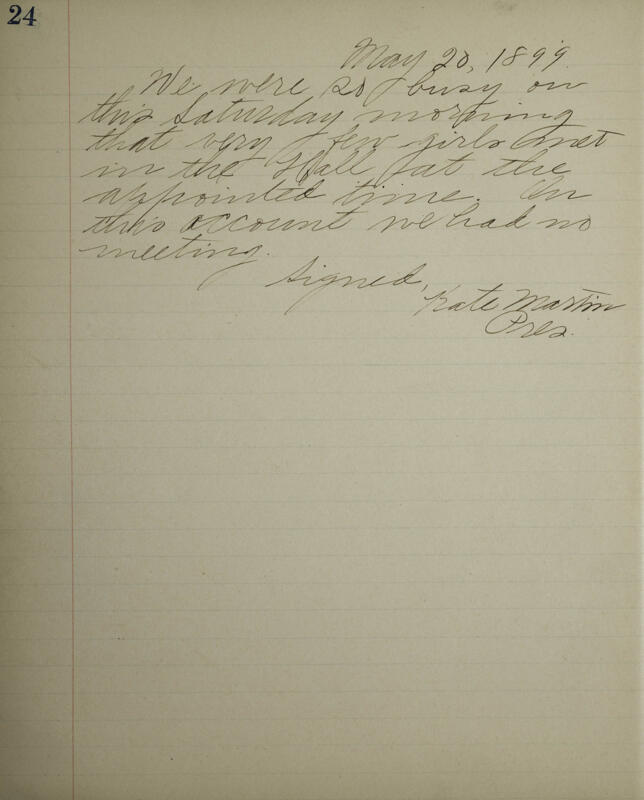 24
May 20, 1899.
We were so busy on
this Saturday morning
that very few girls met
in the Hall at the
appointed time. On
this account we had no
meeting.
Signed,
Kate Martin
Pres.